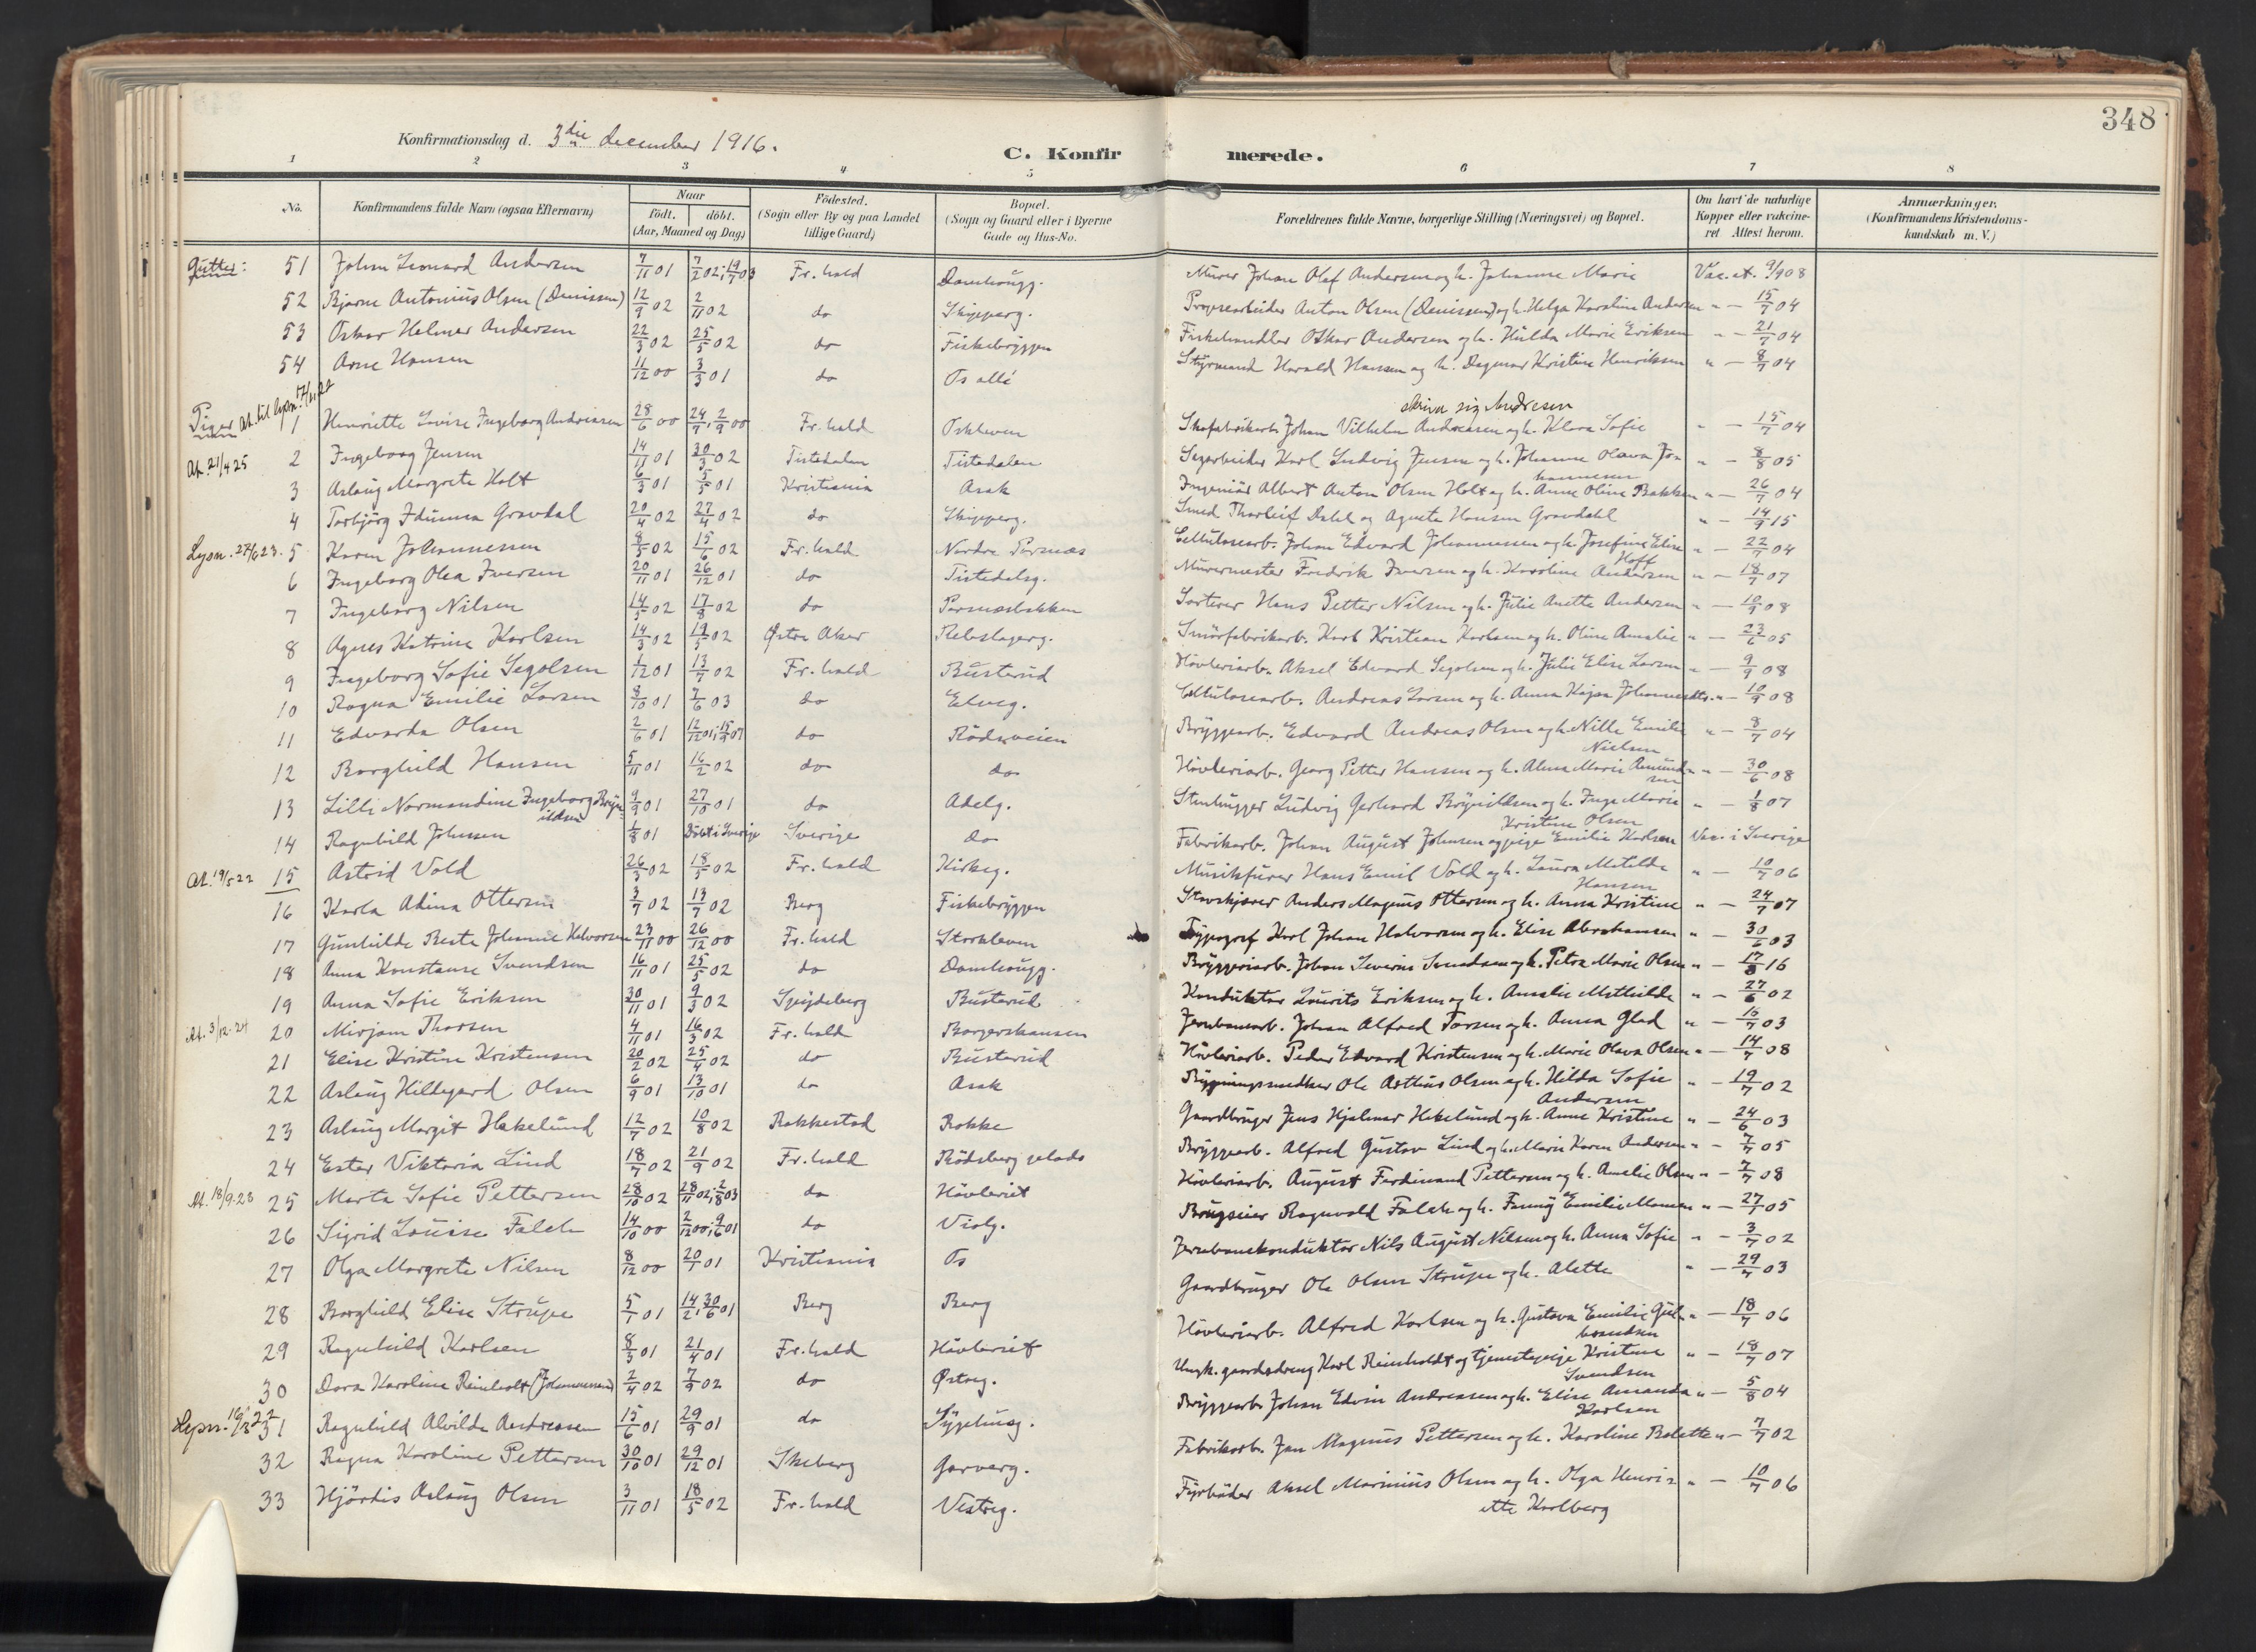 348
Konfirmationsdag d. 3die December 1916.
C. Konfirmerede.
1 2 3 4 5 6 7 8
No. Konfirmandens fulde Navn (ogsaa Efternavn) Naar födt. döbt. (Aar, Maaned og Dag) Födested. (Sogn eller By og paa Landet tillige Gaard) Bopæl. (Sogn og Gaard eller i Byerne Gade og Hus-No. Forældrenes fulde Navne, borgerlige Stilling (Næringsvei) og Bopæl. Om havt de naturlige Kopper eller vakcineret Attest herom. Anmærkninger. (Konfirmandens Kristendomskundskab m. V.)
Gutter: 51 Johan Leonard Andersen 7/11 01 7/2 02; 19/7 03 Fr.hald Damhougg. Murer Johan Olaf Andersen og h. Johanne Marie Vac. at. 9/9 08
52 Bjarne Antonius Olsen (Denissen) 12/9 02 2/11 02 do Skipperg. Anton Olsen (Denissen) og h. Helga Karoline Andersen " — 15/7 04
53 Oskar Helmer Andersen 22/3 02 25/5 02 do Fiskebryggen Fiskehandler Oskar Andersen og h. Hulda Marie Eriksen " — 21/7 04
54 Arne Hansen 11/12 00 3/3 01 do Os allé Styrmand Harald Hansen og h. Dagmar Kristine Henriksen " — 8/7 04
skriver sig Andresen
Piger 1 Henriette Lovise Ingeborg Andreassen 28/6 00 24/7, 2/9 00 Fr.hald Oskleven Skofabrikarb. Johan Vilhelm Andreasen og h. Klara Sofie " — 15/7 04
At. 21/4 25 2 Ingeborg Jensen 14/11 01 30/3 02 Tistedalen Tistedalen Sagarbeider Karl Ludvig Jensen og h. Johanne Olava Johannessen " — 8/8 05
3 Aslaug Margrete Holt 6/3 01 5/5 01 Kristiania Asak Ingeniör Albert Anton Olsen Holt og h. Anne Oline Bakken " — 26/7 04
4 Torbjörg Idunna Gravdal 20/4 02 27/4 02 do Skipperg. Smed Thorleif Dahl og Agneta Hansen Gravdahl " — 14/9 15
Lysn. 27/6 23. 5 Karen Johannessen 8/5 02 15/6 02 Fr.hald Nordre Pernæs Cellulosearb. Johan Edvard Johannessen og h. Josefine Elise Hoff " — 22/7 04
6 Ingeborg Olea Iversen 20/11 01 26/12 01 do Tistedalsg. Murermester Fredrik Iversen og h. Karoline Andersen " — 18/7 07
7 Ingeborg Nilsen 14/5 02 17/8 02 do Pernæsbakken Sorterer Hans Petter Nilsen og h. Julie Anette Andersen " — 10/9 08
8 Agnes Katrine Karlsen 14/3 02 19/5 02 Østre Aker Rebslagerg. Smörfabrikarb. Karl Kristian Karlsen og h. Oline Amalie " — 23/6 05
9 Ingeborg Sofie Segolsen 1/12 01 13/7 02 Fr.hald Busterud Hövleriarb. Aksel Edvard Segolsen og h. Julie Elise Larsen " — 9/9 08
10 Ragna Emilie Larsen 8/10 01 7/6 03 do Elveg. Cellulosearb. Andreas Larsen og h. Anna Kajsa " — 10/9 08
11 Edvarda Olsen 2/6 01 12/12 01; 15/9 07 do Rödsveien Bryggearb. Edvard Andreas Olsen og h. Nille Emilie Nielsen " — 8/7 04
12 Borghild Hansen 5/11 01 16/2 02 do do Hövleriarb. Georg Petter Hansen og h. Alma Marie Amundsen " — 30/6 08
13 Lilli Normandine Ingeborg Brynildsen 9/9 01 27/10 01 do Adelg. Stenhugger Ludvig Gerhard Brynildsen og h. Inga Marie Kristine Olsen " — 1/8 07
14 Ragnhild Johnsen 1/8 01 Döbt i Sverige Sverige do Fabrikarb. Johan August Johnsen og pige Emilie Karlsen Vac. i Sverige
At. 19/5 22 15 Astrid Vold 26/3 02 18/5 02 Fr.hald Kirkeg. Musikfurer Hans Emil Vold og h. Laura Matilde Hansen " — 10/7 06
16 Karla Adina Ottersen 3/7 02 13/7 02 Berg Fiskebryggen Stavskjærer Anders Magnus Ottersen og h. Anna Kristine " — 24/7 07
17 Gunhilda Beate Johanne Halvorsen 23/11 00 26/12 00 Fr.hald Storkleven Typograf Karl Johan Halvorsen og h. Elise Abrahamsen " — 30/6 03
18 Anna Konstanse Svendsen 16/11 01 25/5 02 do Damhougg. Bryggeriarb. Johan Severin Svendsen og h. Petra Marie Olsen " — 17/8 16
19 Anna Sofie Eriksen 30/11 01 9/3 02 Spydeberg Busterud Konduktör Laurits Eriksen og h. Amalie Mathilde " — 27/6 02
At. 3/12. 24 20 Mirjam Thorsen 4/11 01 16/3 02 Fr.hald Borgerskansen Jernbanearb. Johan Alfred Torsen og h. Anna Glad " — 16/7 03
21 Elise Kristine Kristensen 20/2 02 25/4 02 do Busterud Hövleriarb. Peder Edvard Kristensen og h. Marie Olava Olsen " — 14/7 08
22 Aslaug Hildegard Olsen 6/9 01 13/10 01 do Asak Ole Olsen og h. Hilda Sofie Andersen " — 19/7 02
23 Aslaug Margit Hakelund 12/7 02 10/8 02 Rakkestad Rokke Gaardbruger Jens Hjalmar Hakelund og h. Anne Kristine " — 24/6 03
24 Ester Viktoria Lind 18/7 02 21/9 02 Fr.hald Rödsberg Bryggearb. Alfred Gustav Lind og h. Marie Karen Andersen " — 7/7 05
At. 18/9. 23 25 Marta Sofie Pettersen 28/10 02 28/11 02; 2/8 03 do Hövleriet Hövleriarb. August Ferdinand Pettersen og h. Amalie Olsen " — 7/7 08
26 Sigrid Louise Falch 14/10 00 2/12 00; 9/6 01 do Violg. Brugseier Ragnvald Falch og h. Fanny Emilie " — 27/7 05
27 Olga Margrete Nilsen 8/12 00 20/1 01 Kristiania Os Jernbanekonduktör Nils August Nilsen og h. Anna Sofie " — 3/7 02
28 Borghild Elise Strupe 5/1 01 14/2, 30/6 01 Berg Berg Gaardbruger Ole Olsen Strupe og h. Alette " — 29/7 03
29 Ragnhild Karlsen 8/3 01 21/4 01 Fr.hald Hövleriet Hövleriarb. Alfred Karlsen og h. Gustava Emilie Gulbrandsen " — 18/7 06
30 Dora Karoline Reinholt (Johannessen) 2/4 02 7/9 02 do Østreg. Ungk. gaardsdreng Karl Reinholdt og tjenestepige Kristine Svendsen " — 18/7 07
Lysn. 31 Ragnhild Alvilde Andreasen 15/6 01 29/9 01 do Sygehusg. Bryggearb. Johan Edvin Andreasen og h. Elise Amanda Karlsen " — 5/8 04
32 Ragna Karoline Pettersen 30/10 01 29/12 01 Skeberg Garverg. Fabrikarb. Jan Magnus Pettersen og h. Karoline Bolette " — 7/7 02
33 Hjördis Aslaug Olsen 3/11 01 18/5 02 Fr.hald Vestreg. Fyrböder Aksel Marinius Olsen og h. Olga Henriette Karlberg " — 10/7 06